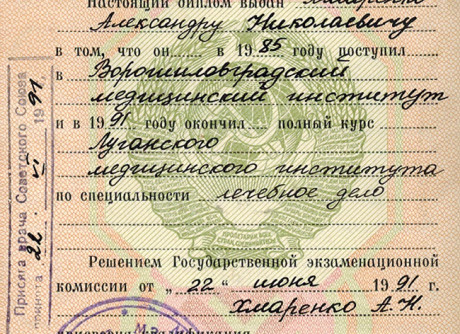 Настоящий диплом выдан Хмаренко
Александру Николаевичу
в том, что он в 1985 году поступил
в Ворошиловградский
медицинский институт
и в 1991 году окончил полный курс
Луганского
медицинского института
по специальности лечебное дело
Решением Государственной экзаменационной
комиссии от „22“ июня 1991 г.
Хмаренко А.Н.
присвоена квалификация
Присяга врача Советского Союза
принята 22 VI 1991